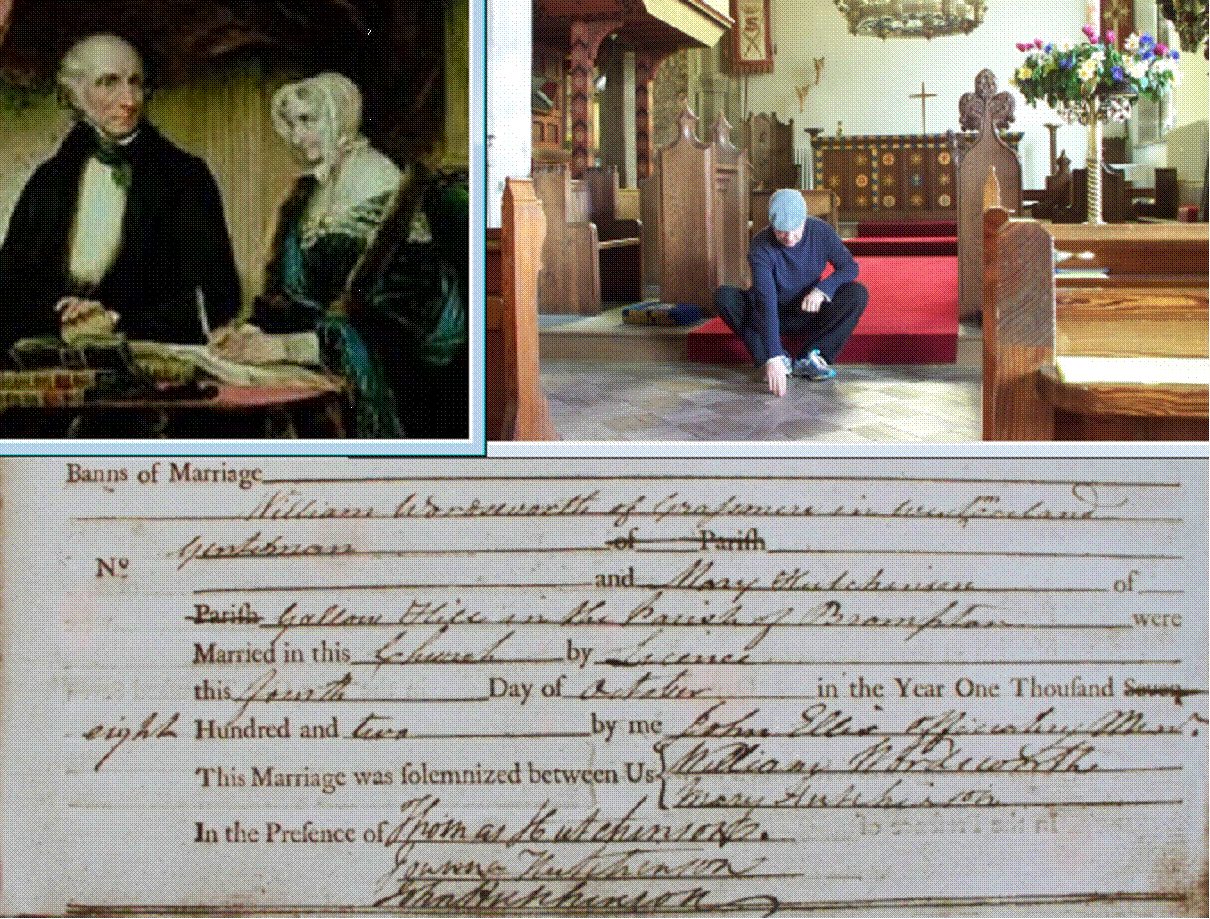 Banns of Marriage
William Wordsworth of Grasmere in Westmoreland
Gentleman of Parish
No
and Mary Hutchinson of
Parish Gallow Hill in the Parish of Brompton were
Married in this Church by Licence
this fourth Day of October in the Year One Thousand Seven
eight Hundred and two by me John Ellis officiating Minr.
This Marriage was solemnized between Us William Wordsworth
Mary Hutchinson
In the Presence of Thomas Hutchinson
Joanna Hutchinson
John Hutchinson